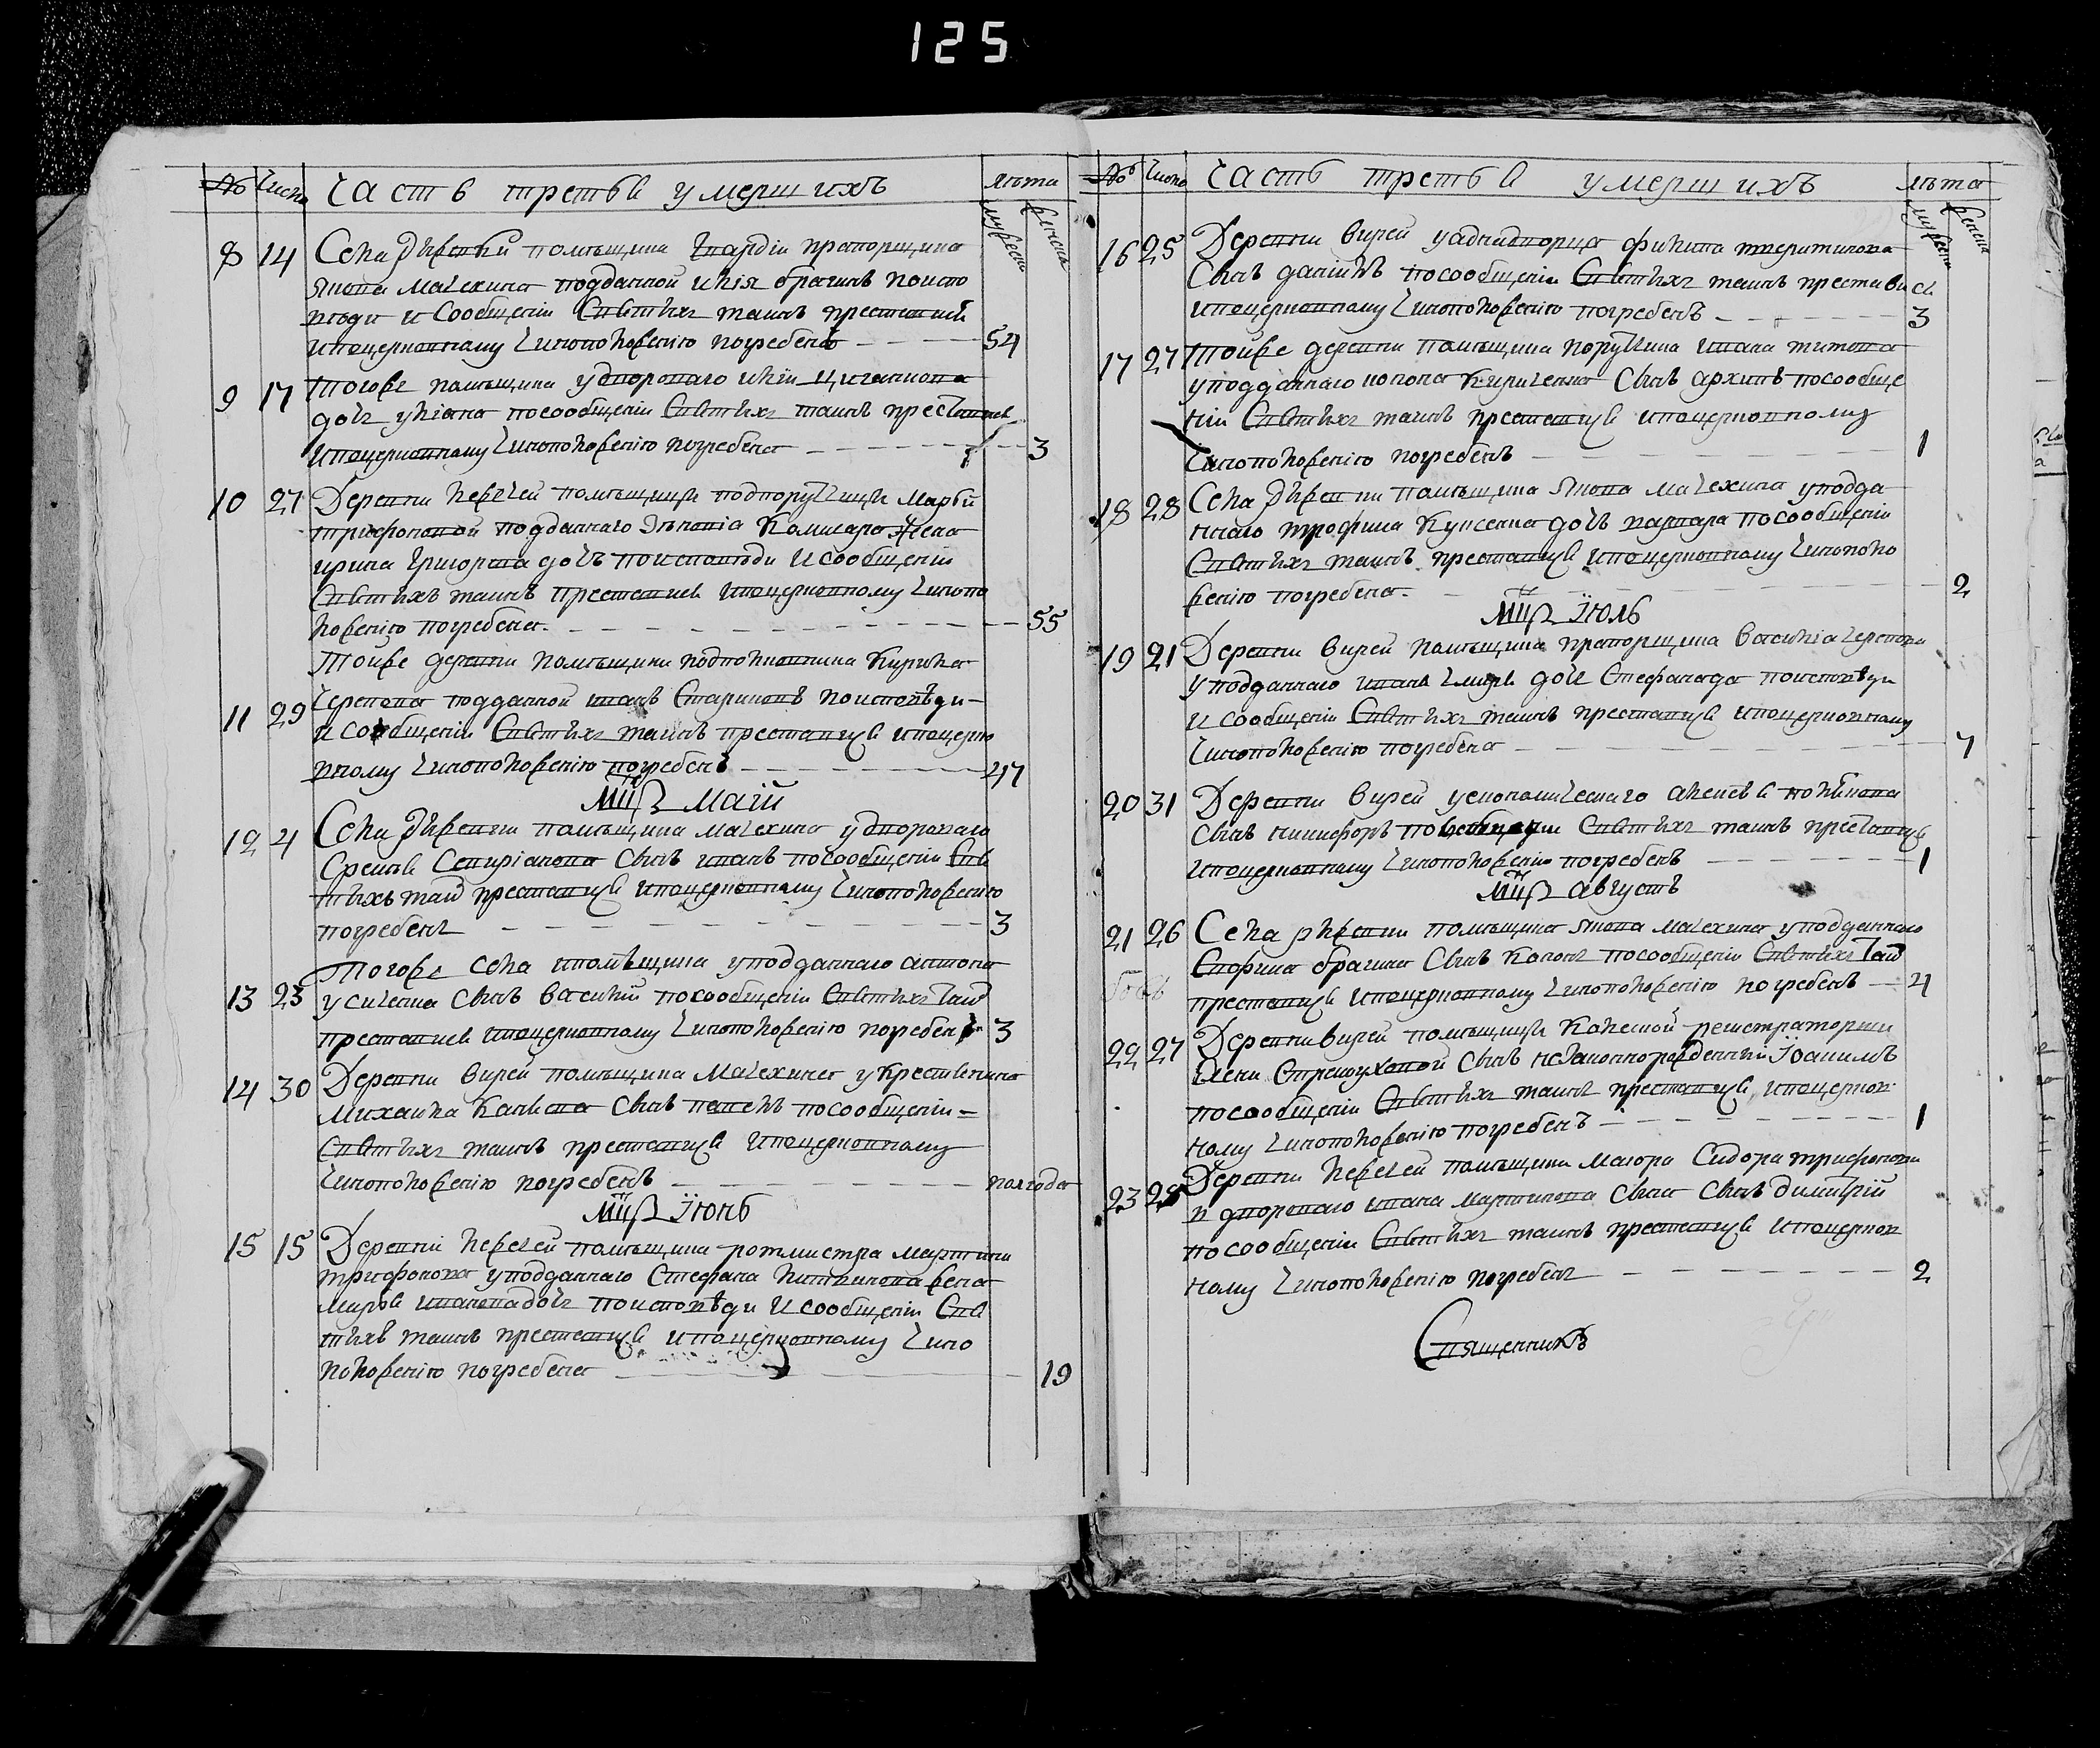 125
№ Число Часть третья умершихъ лѣта
мужеска женска
8 14 Села Ржевки помѣщика гвардіи прапорщика
Якова Мачехина подданной Илія Брагинъ по испо
вѣди и сообщеніи Святыхъ таинъ преставися
и по церковному чиноположенію погребенъ 54
9 17 Тогоже помѣщика у двороваго Иліи Циганкова
дочь Уліана по сообщеніи Святыхъ таинъ преставися
и по церковному чиноположенію погребена 3
10 27 Деревни помѣщицы подпорутчицы Марѳы
Трифоновой подданнаго жена
Ирина Григорева дочь по исповѣди и сообщеніи
Святыхъ таинъ преставися и по церковному чинопо
ложенію погребена 55
Тойже деревни помѣщика подполковника Кирила
11 29 Черепова подданной Иванъ Стариковъ по исповѣди
и сообщеніи Святыхъ таинъ преставися и по церко
вному чиноположенію погребенъ 47
Мцъ Маій
12 4 Села Ржевки помѣщика Мачехина у двороваго
сынъ Иванъ по сообщеніи Свя
тыхъ таин преставися и по церковному чиноположенію
погребенъ 3
Тогоже села и помѣщика у подданнаго Антона
13 23 Усиченка сынъ Василій по сообщеніи Святыхъ таин
преставися и по церковному чиноположенію погребенъ 3
14 30 Деревни Вирей помѣщика Мачехина у крестьянина
Михаила сынъ Павелъ по сообщеніи
Святыхъ таинъ преставися и по церковному
чиноположенію погребенъ полгода
Мцъ Іюнь
15 15 Деревни помѣщика ротмистра Мартина
Трифонова у подданнаго Стефана Литвинова жена
Марѳа Иванова дочь по исповѣди и сообщеніи Свя
тыхъ таинъ преставися и по церковному чино
положенію погребена 19
№ Число Часть третья умершихъ лѣта
мужеска женска
16 25 Деревни Вирей у однодворца Филипа
сынъ Даніилъ по сообщеніи Святыхъ таинъ преставися
и по церковному чиноположенію погребенъ 3
17 27 Тойже деревни помѣщика порутчика Ивана Титова
у подданнаго Кириченка сынъ Архипъ по сообще
ніи Святыхъ таинъ преставися и по церковному
чиноположенію погребенъ 1
18 28 Села Ржевки помѣщика Якова Мачехина у подда
ннаго Трофима дочь Варвара по сообщеніи
Святыхъ таинъ преставися и по церковному чинополо
женію погребена 2
Мцъ Іюль
19 21 Деревни Вирей помѣщика прапорщика Василія Черепова
у подданнаго Ивана дочь Стефанида по исповѣди
и сообщеніи Святыхъ таинъ преставися и по церковному
чиноположенію погребена 7
20 31 Деревни Вирей у економическаго Алексѣя Полянова
сынъ Никифоръ по Святыхъ таинъ преставися
и по церковному чиноположенію погребенъ 1
Мцъ Августъ
21 26 Села Ржевки помѣщика Якова Мачехина у подданнаго
Брагина сынъ по сообщеніи Святыхъ таин
преставися и по церковному чиноположенію погребенъ 4
22 27 Деревни Вирей помѣщицы колеской регистраторши
Елены Стремоуховой сынъ незаконнорожденный Іоакимъ
по сообщеніи Святыхъ таинъ преставися и по церков
ному чиноположенію погребенъ 1
Деревни помѣщика маіора Сидора Трифонова
23 28 двороваго Ивана Мартинова сына сынъ Димитрій
по сообщеніи Святыхъ таинъ преставися и по церков
ному чиноположенію погребенъ 2
Священникъ